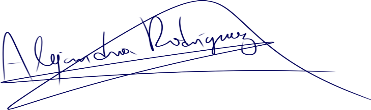 Alejandra Rodriguez